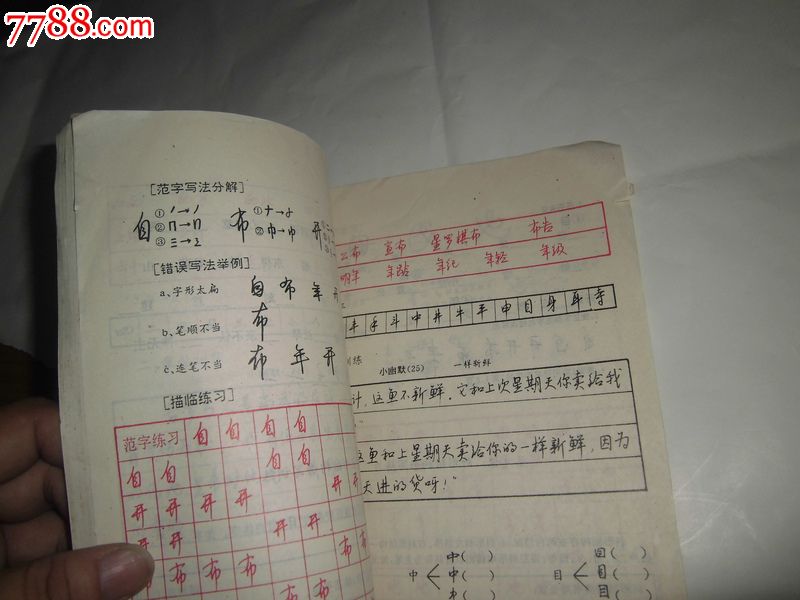 7788.com
[范字写法分解]
自 ①
②
③
布 ①
②
开 ①
②
③
[错误写法举例]
a、字形太扁 自 布 年 开
b、笔顺不当 布
c、连笔不当 布 年 开
[描临练习]
范字练习 自 自 自 自
自 自 自 自
开 开 开 开 开
开 开 开
布 布 布 布 布
布 布
公布 宣布 星罗棋布 布告
明年 年龄 年纪 年轻 年级
丰 手 斗 中 井 牛 平 申 目 身 耳 寺
训练 小幽默(25) 一样新鲜
计,这鱼不新鲜。它和上次星期天你卖给我
这鱼和上星期天卖给你的一样新鲜,因为
天进的货呀!"
中 中( )
中( )
中(
目 回( )
目( )
目(